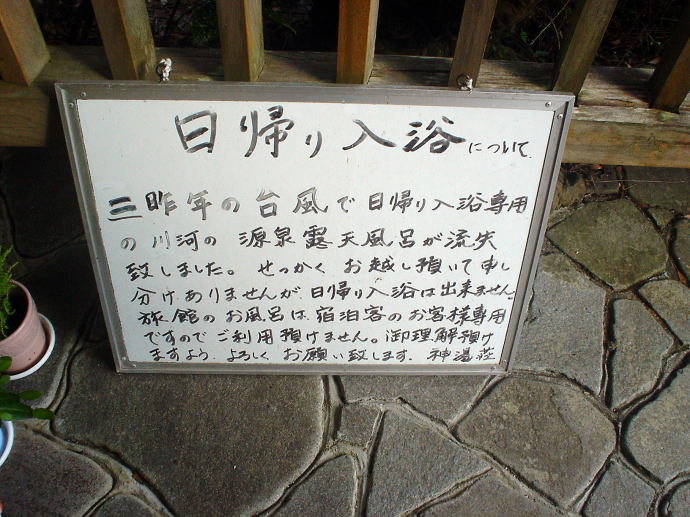 日帰り入浴について
三昨年の台風で日帰り入浴専用
の川河の源泉露天風呂が流失
致しました。せっかくお越し預いて申し
分けありませんが日帰り入浴は出来ません。
旅館のお風呂は宿泊客のお客様専用
ですのでご利用預けません。御理解預け
ますようよろしくお願い致します。神湯荘